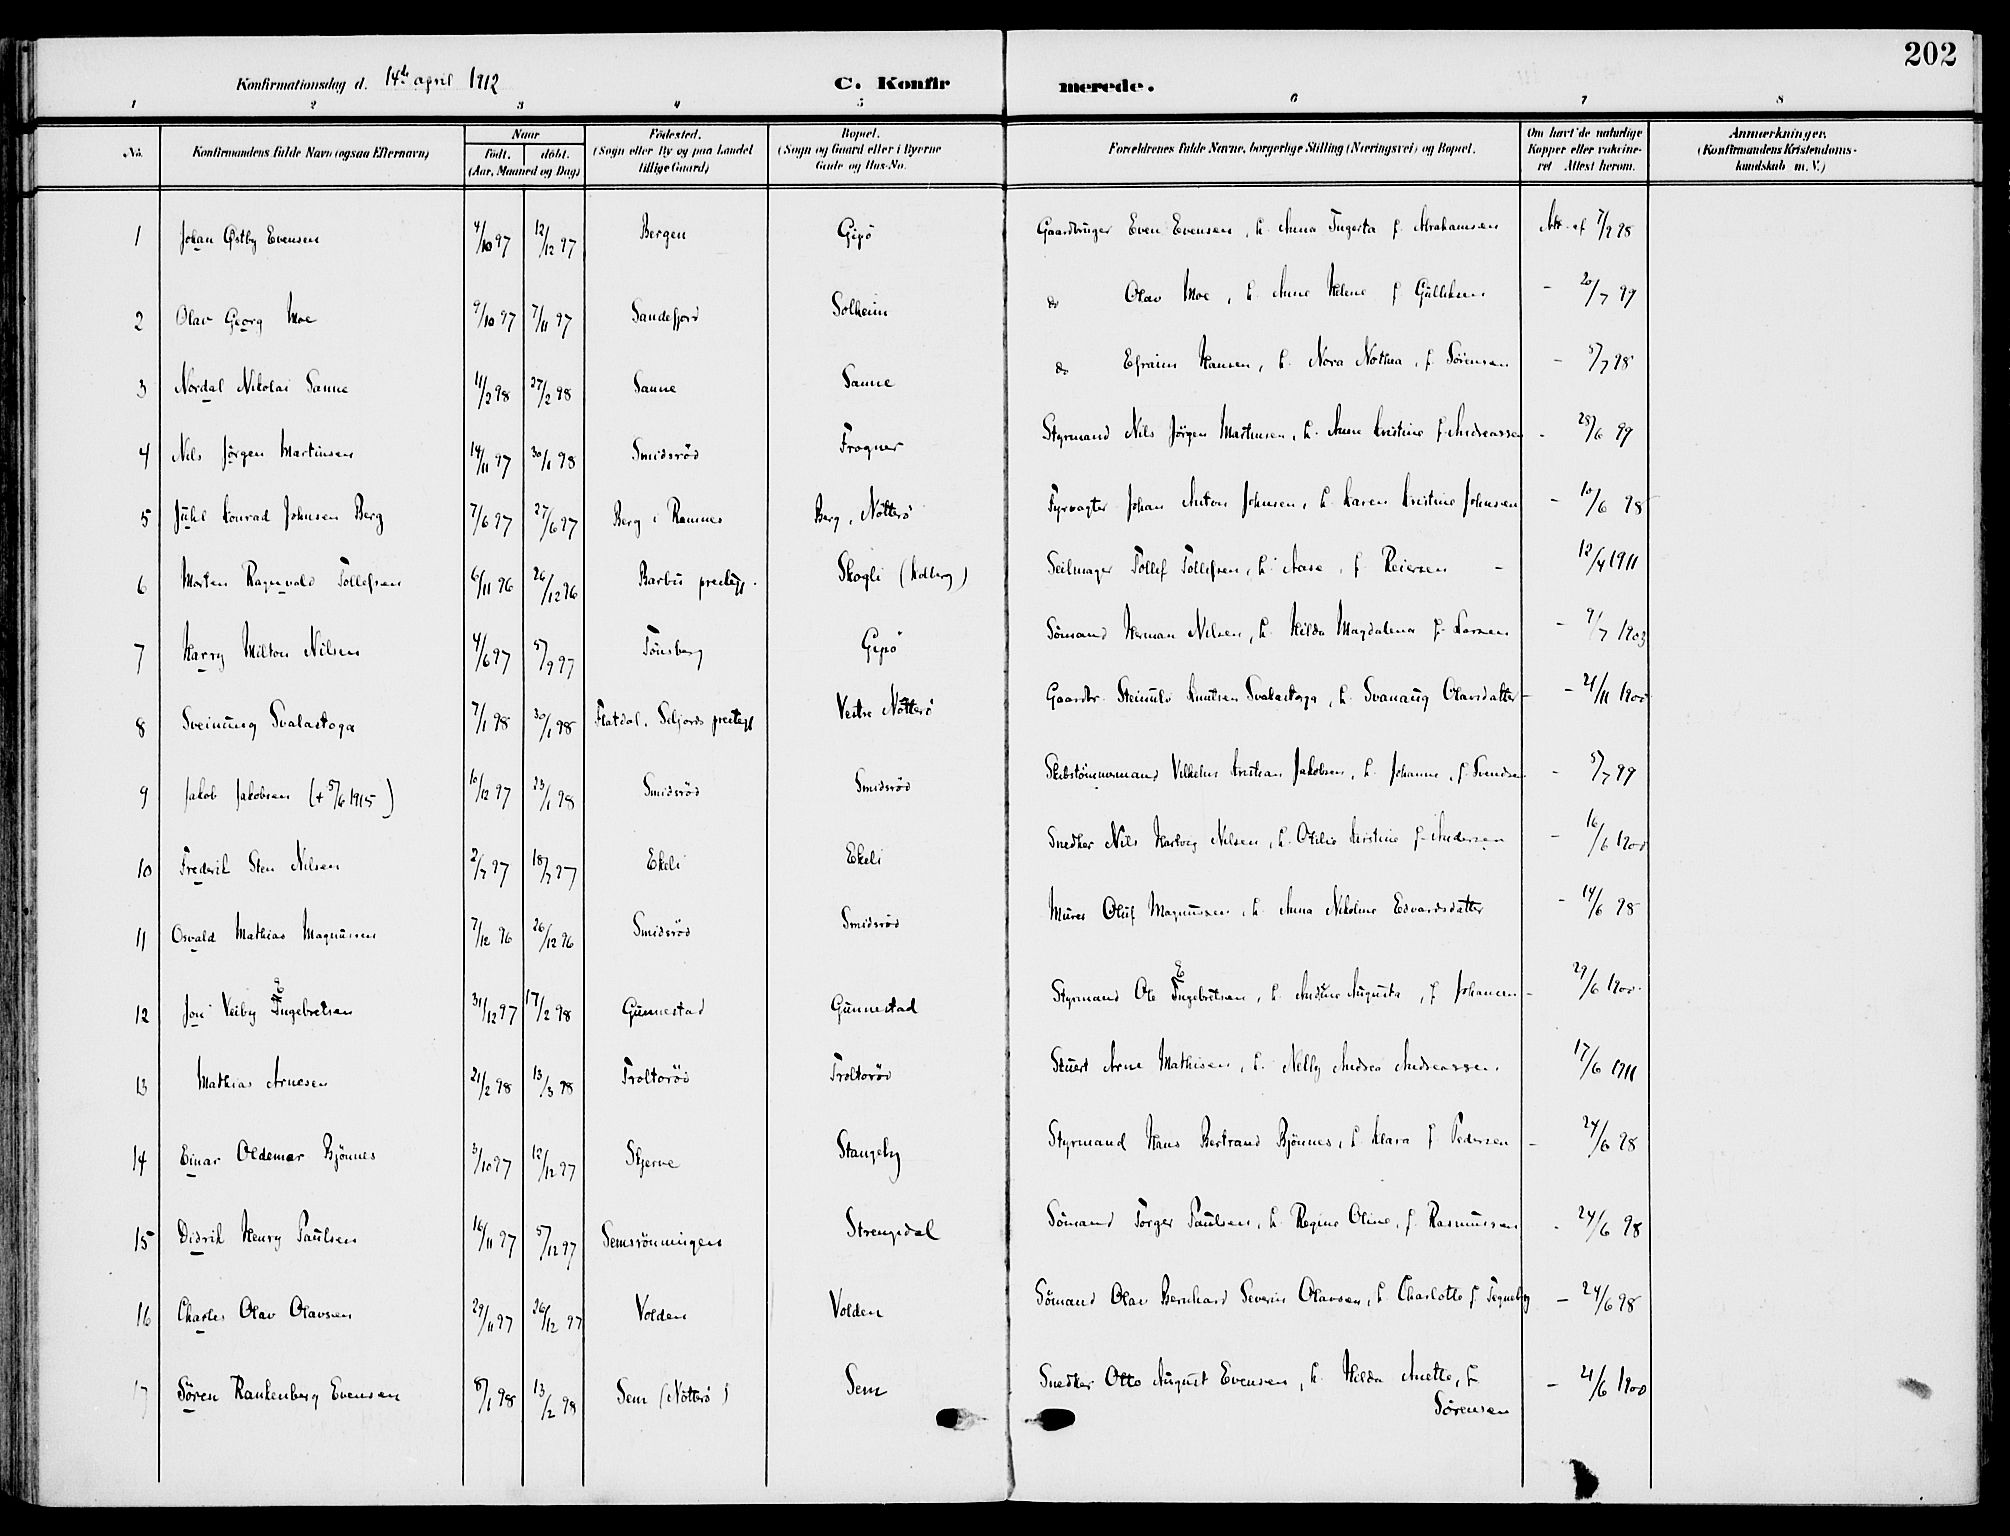 202
Konfirmationsdag d. 14de april 1912 C. Konfirmerede.
1 2 3 4 5 6 7 8
No. Konfirmandens fulde Navn (ogsaa Efternavn) Naar født. døbt. (Aar, Maaned og Dag) Fødested. (Sogn eller By og paa Landet tillige Gaard) Bopæl. (Sogn og Gaard eller i Byerne Gade og Hus-No. Forældrenes fulde Navne, borgerlige Stilling (Næringsvei) og Bopæl. Om havt de naturlige Kopper eller vakcineret Attest herom. Anmærkninger. (Konfirmandens Kristendomskundskab m. V.)
1 Johan Østby Evensen 4/10 97 12/12 97 Bergen Gipö Gaardbruger Even Evensen, h. Anna Ingerta f. Abrahamsen Att. af 7/9 98
2 Olav Georg Moe 9/10 97 7/11 97 Sandefjord Solheim do Olav Moe, h. Anne Helene f. Gulliksen - 20/7 99
3 Nordal Nikolai Sanne 11/2 98 27/2 98 Sanne Sanne do Efraim Hansen, h. Nora Nothea, f. Sörensen - 5/7 98
4 Nils Jörgen Martinsen 14/11 97 30/1 98 Smidsröd Frogner Styrmand Nils Jörgen Martinsen, h. Anne Kristine f. Andreassen - 28/6 99
5 Juhl Konrad Johnsen Berg 7/6 97 27/6 97 Berg i Ramnes Berg, Nötterö Fyrvagter Johan Anton Johnsen, h. Karen Kristine Johnsen - 10/6 98
6 Morten Ragnvald Tollefsen 6/11 96 26/12 96 Barbu prestegj. Skogli (Kolberg) Seilmager Tollef Tollefsen, h. Aase, f. Reiersen - 12/4 1911
7 Harry Milton Nilsen 4/6 97 5/9 97 Tönsberg Gipö Sömand Herman Nilsen, h. Hilda Magdalena f. Larsen - 9/7 1903
8 Sveinung Svalastoga 7/1 98 30/1 98 Flatdal, Seljords prestegj Vestre Nötterö Gaardbr. Steinulv Knutsen Svalastoga, h. Svanaug Olavsdatter - 21/11 1900
9 Jakob Jakobsen (+ 5/6 1915) 10/12 97 23/1 98 Smidsröd Smidsröd Skibstömmermand Vilhelm Kristian Jakobsen, h. Johanne, f. Svendsen - 5/7 99
10 Frederik Sten Nilsen 2/7 97 18/7 97 Ekeli Ekeli Snedker Nils Hartvig Nilsen, h. Otilie Kristine f. Andersen - 16/6 1900
11 Osvald Mathias Magnussen 7/12 96 26/12 96 Smidsröd Smidsröd Murer Oluf Magnussen, h. Anna Nikoline Edvardsdatter - 14/6 98
12 Joni Veiby Ingebretsen 31/12 97 17/2 98 Gunnestad Gunnestad Styrmand Ole Ingebretsen, h. Andine Augusta, f. Johansen - 29/6 1900
13 Mathias Arnesen 21/2 98 13/3 98 Troltoröd Troltoröd Stuert Arne Mathisen, h. Nelly Andrea Andreassen. 17/6 1911
14 Einar Oldemar Bjönnes 3/10 97 12/12 97 Skjerve Stangeby Styrmand Hans Bertrand Bjönnes, h. Klara f. Pedersen - 24/6 98
15 Didrik Henry Paulsen 16/11 97 5/12 97 Semsrönningen Strengsdal Sömand Torger Paulsen, h. Regine Oline, f. Rasmussen - 24/6 98
16 Charles Olav Olavsen 29/11 97 26/12 97 Volden Volden Sömand Olav Bernhard Severin Olavsen, h. Charlotte f. Tegneby - 24/6 98
17 Sören Rankenberg Evensen 8/1 98 13/2 98 Sem (Nötterö) Sem Snedker Otto August Evensen, h. Hilda Anette, f. Sörensen - 21/6 1900